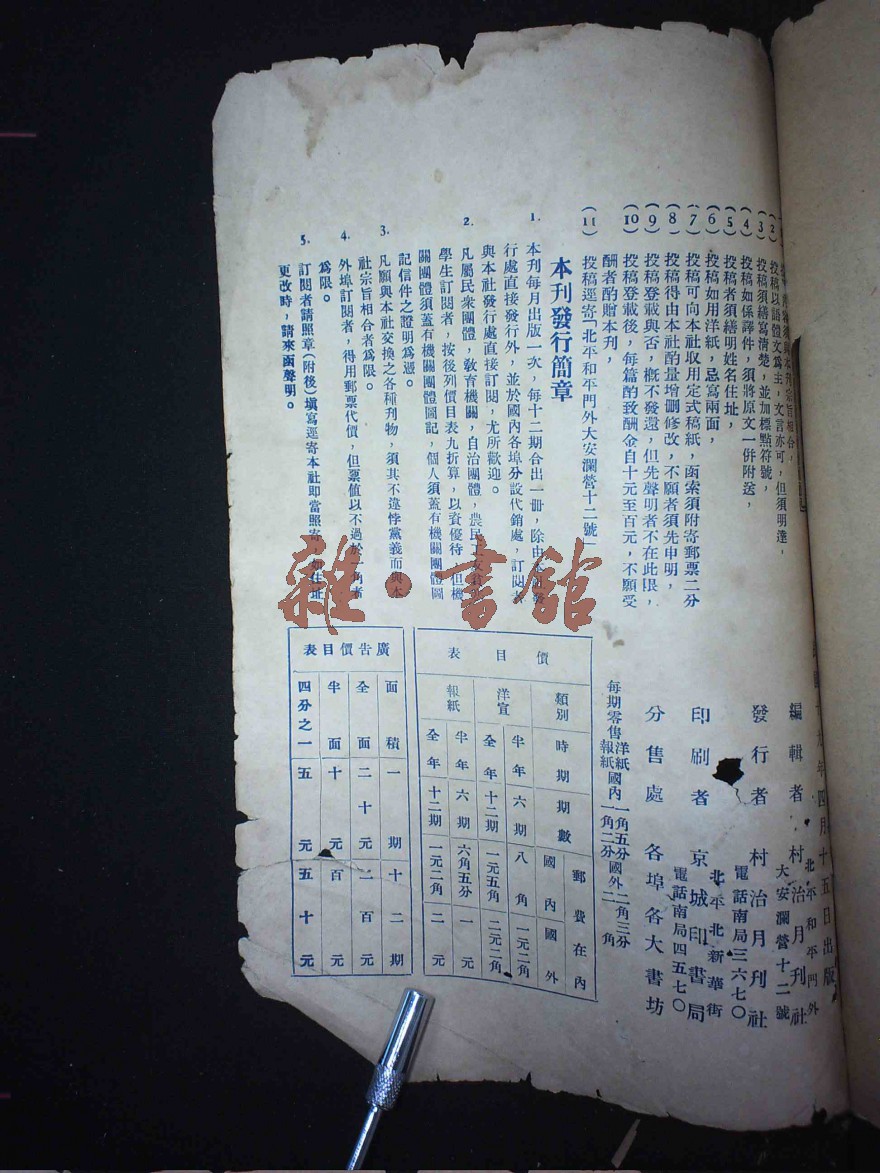 本刊宗旨相合，
(2) 投稿以語體文爲主，文言亦可，但須明達，
(3) 投稿須繕寫清楚，並加標點符號，
(4) 投稿如係譯件，須將原文一併附送，
(5) 投稿者須繕明姓名住址，
(6) 投稿如用洋紙，忌寫兩面，
(7) 投稿可向本社取用定式稿紙，函索須附寄郵票二分
(8) 投稿得由本社酌量增刪修改，不願者須先申明，
(9) 投稿登載與否，槪不發還，但先聲明者不在此限，
(10) 投稿登載後，每篇酌致酬金自十元至百元，不願受
酬者酌贈本刋，
(11) 投稿逕寄「北平和平門外大安瀾營十二號」
本刋發行簡章
1. 本刋每月出版一次，每十二期合出一册，除由
行處直接發行外，並於國內各埠分設代銷處，訂閱者
與本社發行處直接訂閱，尤所歡迎。
2. 凡屬民衆團體，敎育機關，自治團體，農民
學生訂閱者，按後列價目表九折算，以資優待，但機
關團體須蓋有機關團體圖記，個人須蓋有機關團體圖
記信件之證明爲憑。
3. 凡願與本社交換之各種刋物，須其不違悖黨義而與本
社宗旨相合者爲限。
4. 外埠訂閱者，得用郵票代價，但票值以不過於一角者
爲限。
5. 訂閱者請照章(附後)塡寫逕寄本社卽當照寄，如住址
更改時，請來函聲明。
雜·書館
年四月十五日出版
編輯者 村治月刊社
北平和平門外
大安瀾營十二號
發行者 村治月刊社
電話南局三六七〇
印刷者 京城印書局
北平北新華街
電話南局四五七〇
分售處 各埠各大書坊
每期零售 洋紙國內一角五分國外二角三分
報紙國內一角二分國外二角
價目表
類別 時期 期數 郵費在內 國內 國外
洋宣 半年 六期 八角 一元二角
全年 十二期 一元五角 二元二角
報紙 半年 六期 六角五分 一元
全年 十二期 一元二角 二元
廣告價目表
面積 一期 十二期
全面 二十元 二百元
半面 十元 百元
四分之一 五元 五十元